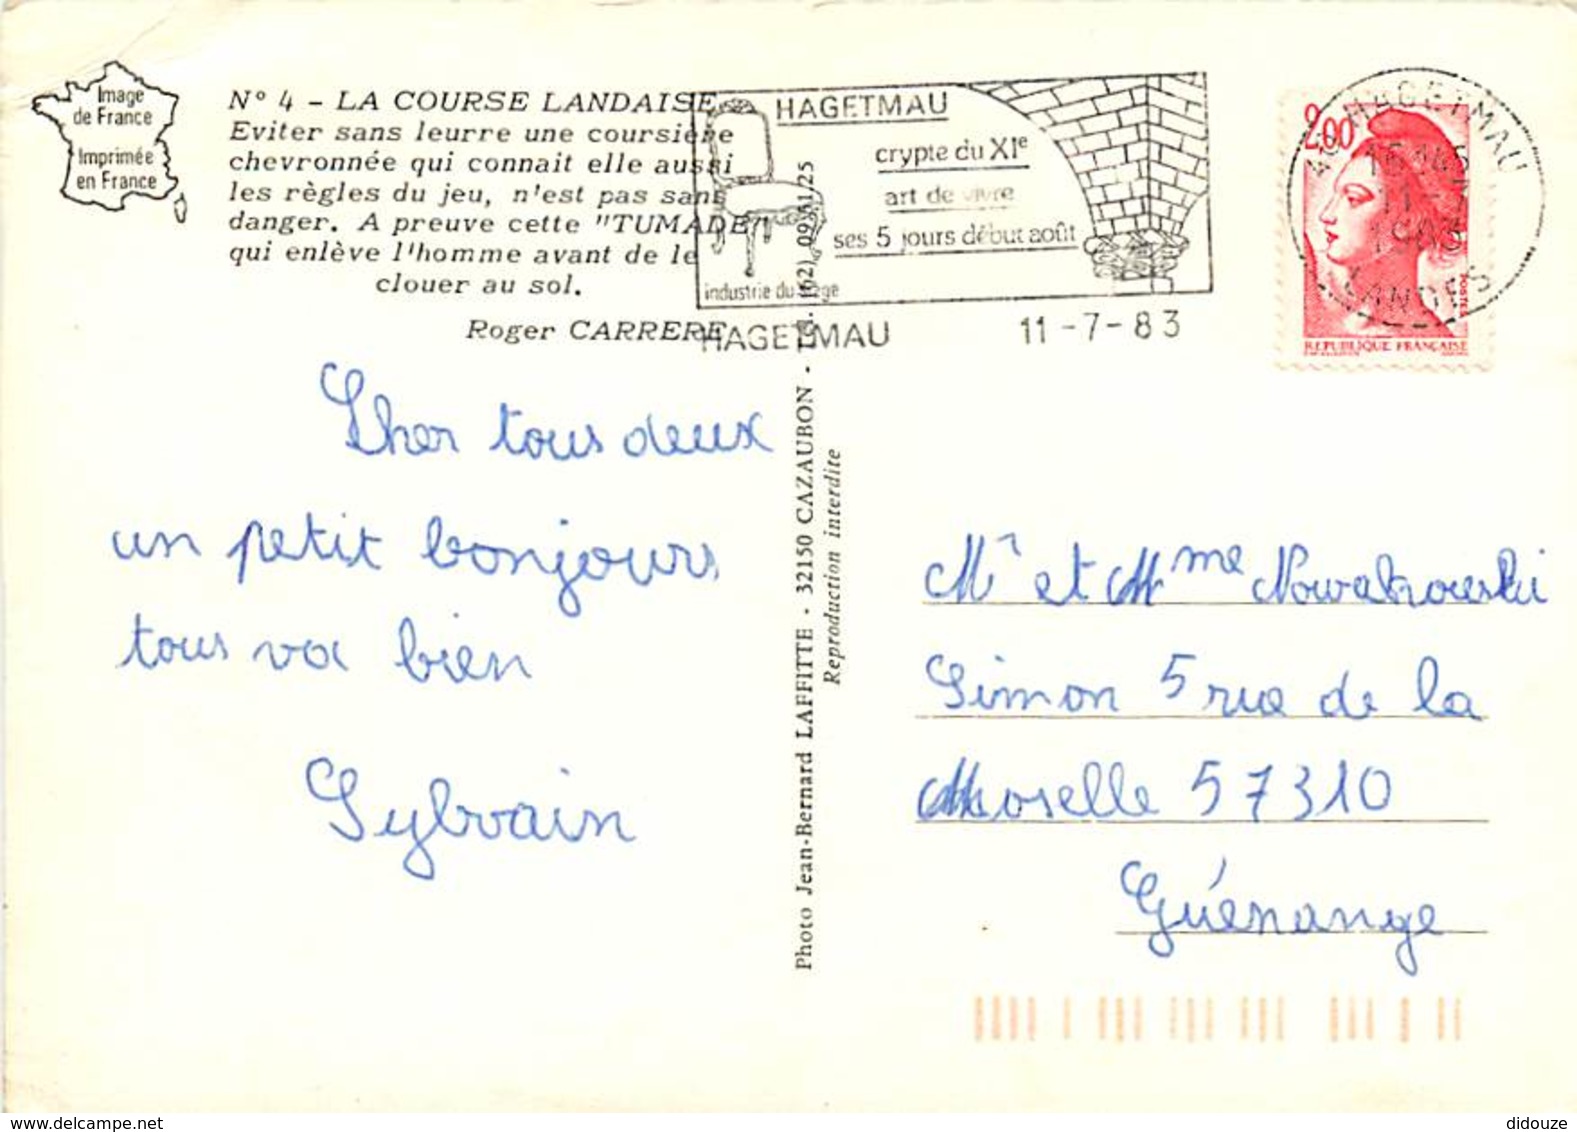 Image
de France
Imprimée
en France
N° 4 - LA COURSE LANDAISE
Eviter sans leurre une coursière
chevronnée qui connait elle aussi
les règles du jeu, n'est pas sans
danger. A preuve cette "TUMADE"
qui enlève l'homme avant de le
clouer au sol.
Roger CARRERE
HAGETMAU
crypte du XIe
art de vivre
ses 5 jours début août
industrie du siège
HAGETMAU 11-7-83
2,00
HAGETMAU
LANDES
POSTES
REPUBLIQUE FRANÇAISE
Cher tous deux
un petit bonjours
tous va bien
Sylvain
Photo Jean-Bernard LAFFITTE - 32150 CAZAUBON - Tél. (62) 09.51.25
Reproduction interdite
Mr et Mme Nowakowski
Simon 5 rue de la
Moselle 57310
Guénange
didouze